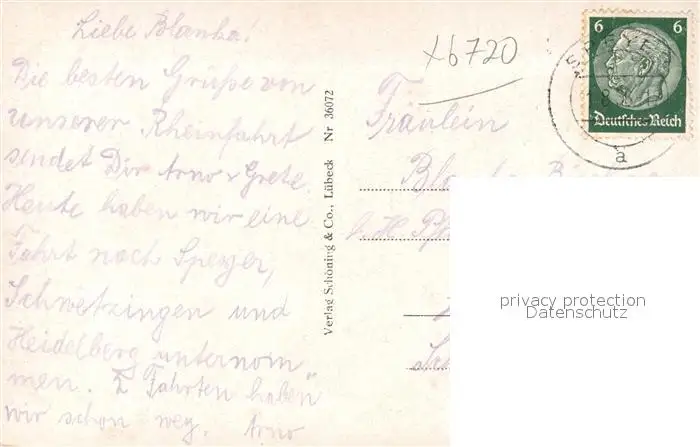 Liebe Blanka!
Die besten Grüße von
unserer Rheinfahrt
sendet Dir Arno u Grete.
Heute haben wir eine
Fahrt nach Speyer,
Schwetzingen und
Heidelberg unternom
men. 2 Fahrten haben
wir schon weg. Arno
Verlag Schöning & Co., Lübeck Nr 36072
xb720
6 6
Deutsches Reich
a
Fräulein
privacy protection
Datenschutz